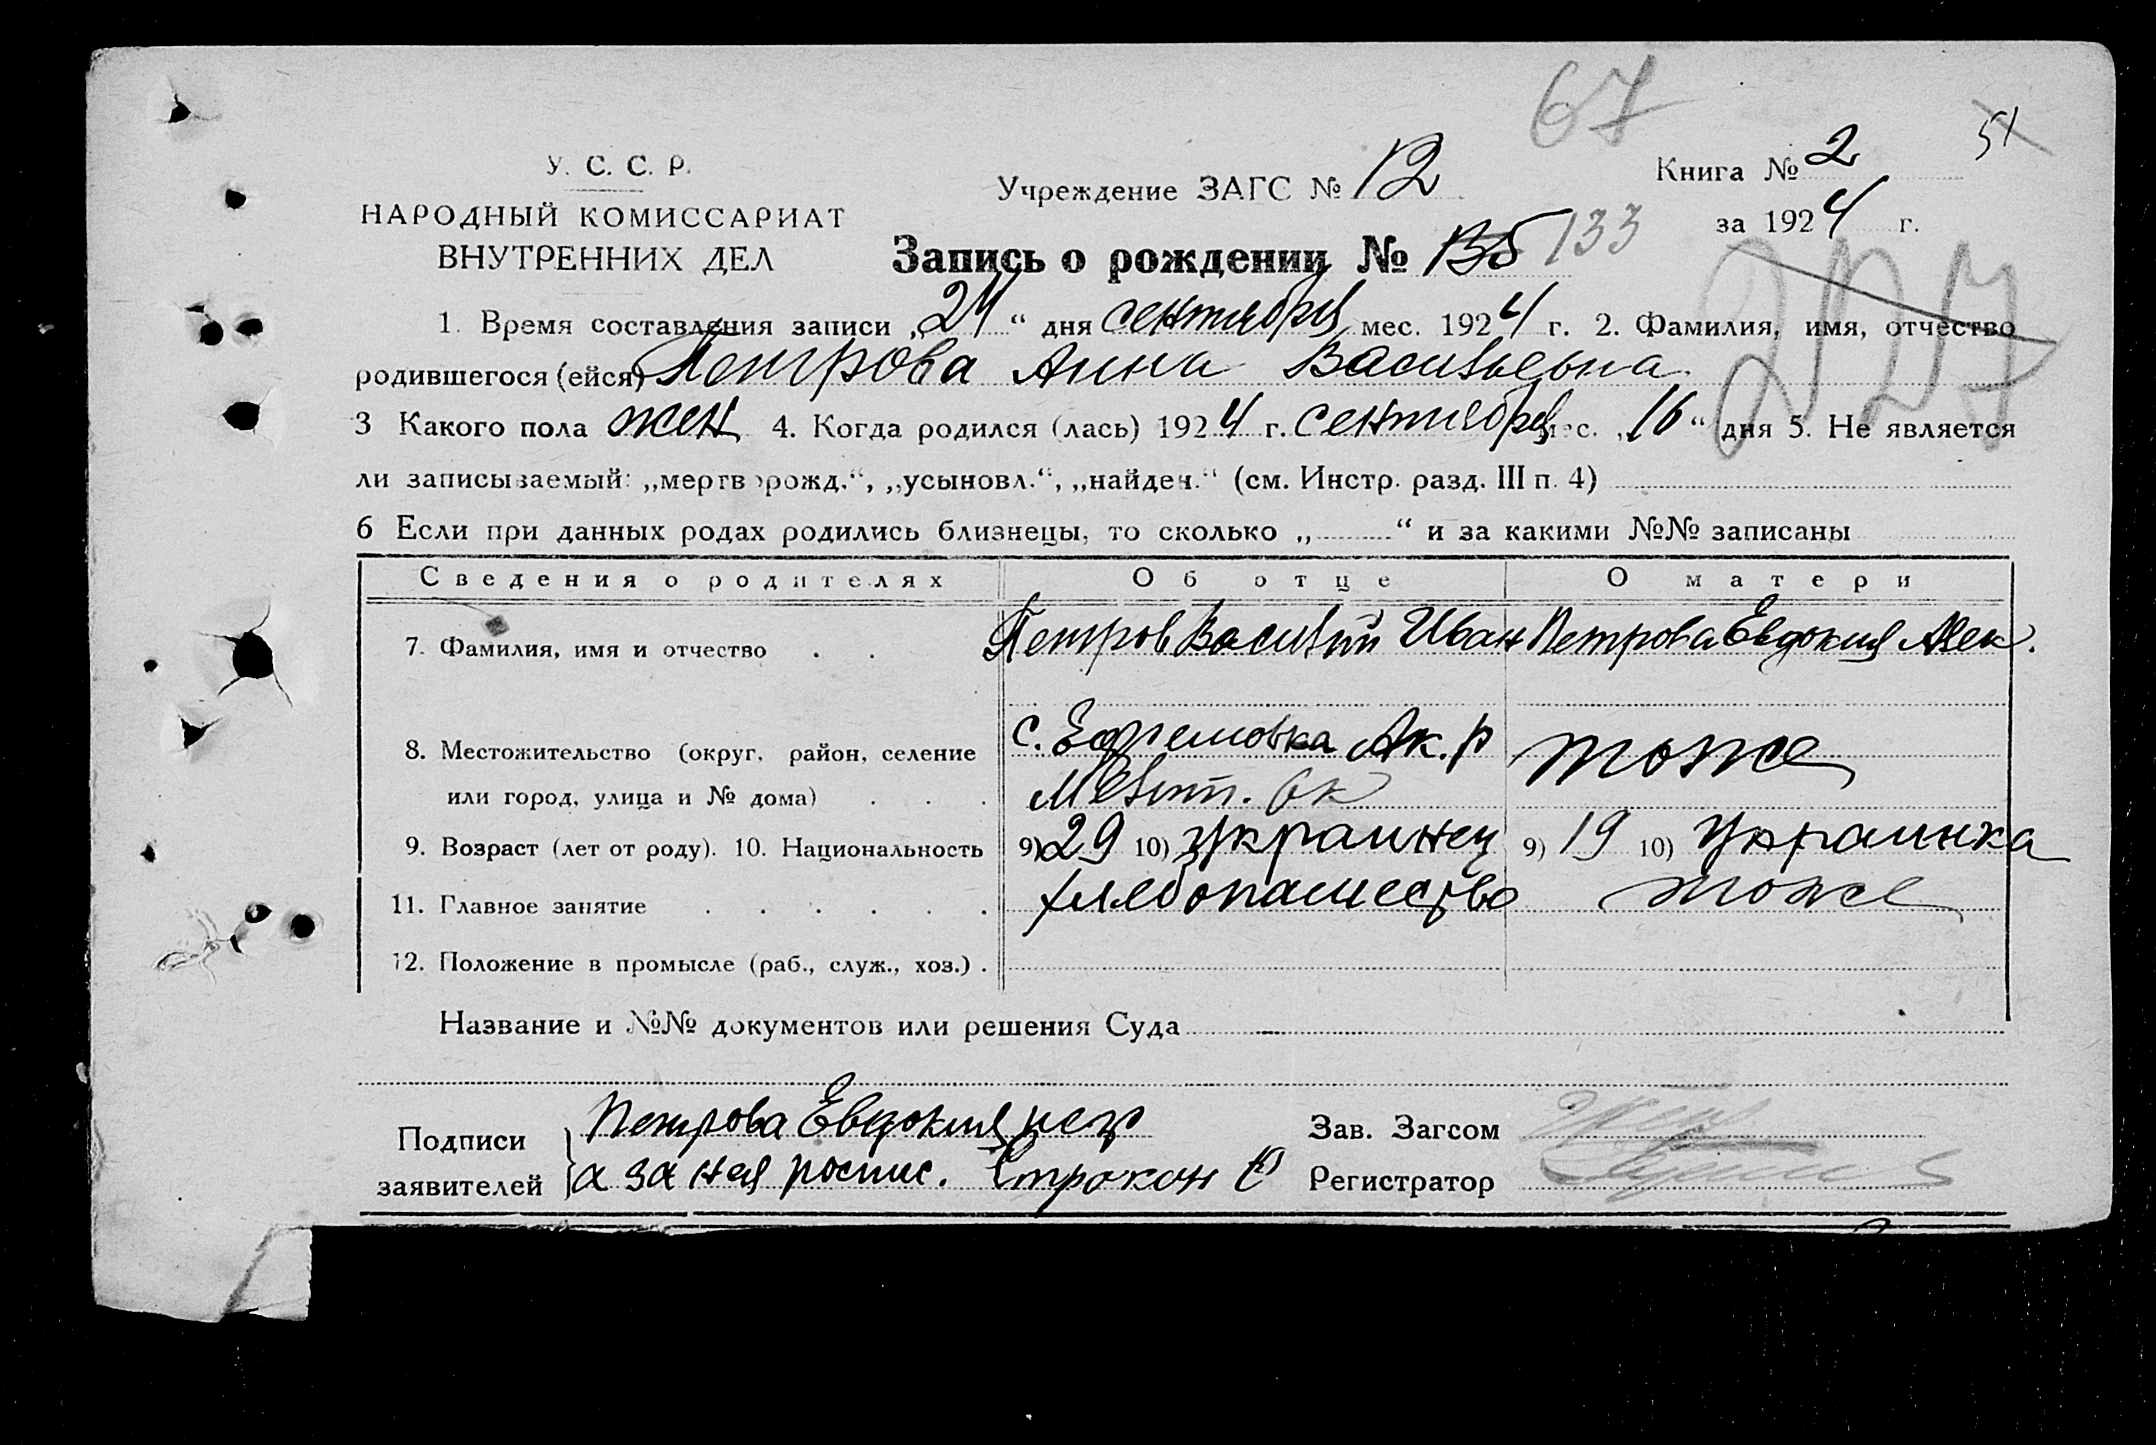 67
51
У. С. С. Р.
НАРОДНЫЙ КОМИССАРИАТ
ВНУТРЕННИХ ДЕЛ
Учреждение ЗАГС № 12
Книга № 2
за 1924 г.
Запись о рождении № 133
227
1. Время составления записи „24“ дня сентября мес. 1924 г. 2. Фамилия, имя, отчество
родившегося (ейся) Петрова Анна Васильевна
3 Какого пола жен 4. Когда родился (лась) 1924 г. сентября мес. „16“ дня 5. Не является
ли записываемый: „мертворожд.“, „усыновл.“, „найден.“ (см. Инстр. разд. III п. 4)
6 Если при данных родах родились близнецы, то сколько „ “ и за какими №№ записаны
Сведения о родителях Об отце О матери
7. Фамилия, имя и отчество . . Петров Василий Иван Петрова Евдокия Алек.
8. Местожительство (округ, район, селение с. Ефремовка Ак. р тоже
или город, улица и № дома) . . . Мелит. ок
9. Возраст (лет от роду). 10. Национальность 9) 29 10) украинец 9) 19 10) украинка
11. Главное занятие . . . . . . хлебопашество тоже
12. Положение в промысле (раб., служ., хоз.) .
Название и №№ документов или решения Суда —
Подписи заявителей } Петрова Евдокия негр
а за нея роспис.
Зав. Загсом
Регистратор